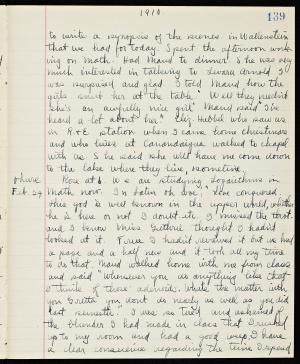 1910.
139
to write a synopsis of the scenes in Wallenstein
that we had for today. Spent the afternoon work-
ing on Math. Had Maud to dinner. She was very
much interested in talking to Levara Arnold. I
was surprised and glad. I told Maud how the
girls sniff her at the table. "Well they needn't
she's an awfully nice girl" Maud said "I've
heard a lot about her." Liz. Hubbell who saw us
in R + E station when I came home Christmas
and who lives at Canandaigua walked to chapel
with us. She said she will have me come down
to the lake where they live, sometime.
Thurs. Rose at 6. We are studying Logarithms in
Feb. 24 Math now. In Latin oh dear, Lex conquered
this god is well known in the upper world, whether
he is here or not I doubt it. I missed the first
and I know Miss Guthrie thought I hadn't
looked at it. True I hadn't reviewed it but we had
a page and a half new and it took all my time
to do that. Maud walked home with me from class
and said "Whenever you do anything like that
I think of those adenoids. What's the matter with
you Gretta you don't do nearly as well as you did
last semester." I was so tired and ashamed of
the blunder I had made in class that I rushed
up to my room and had a good weep. I have
a clear conscience regarding the time I spend